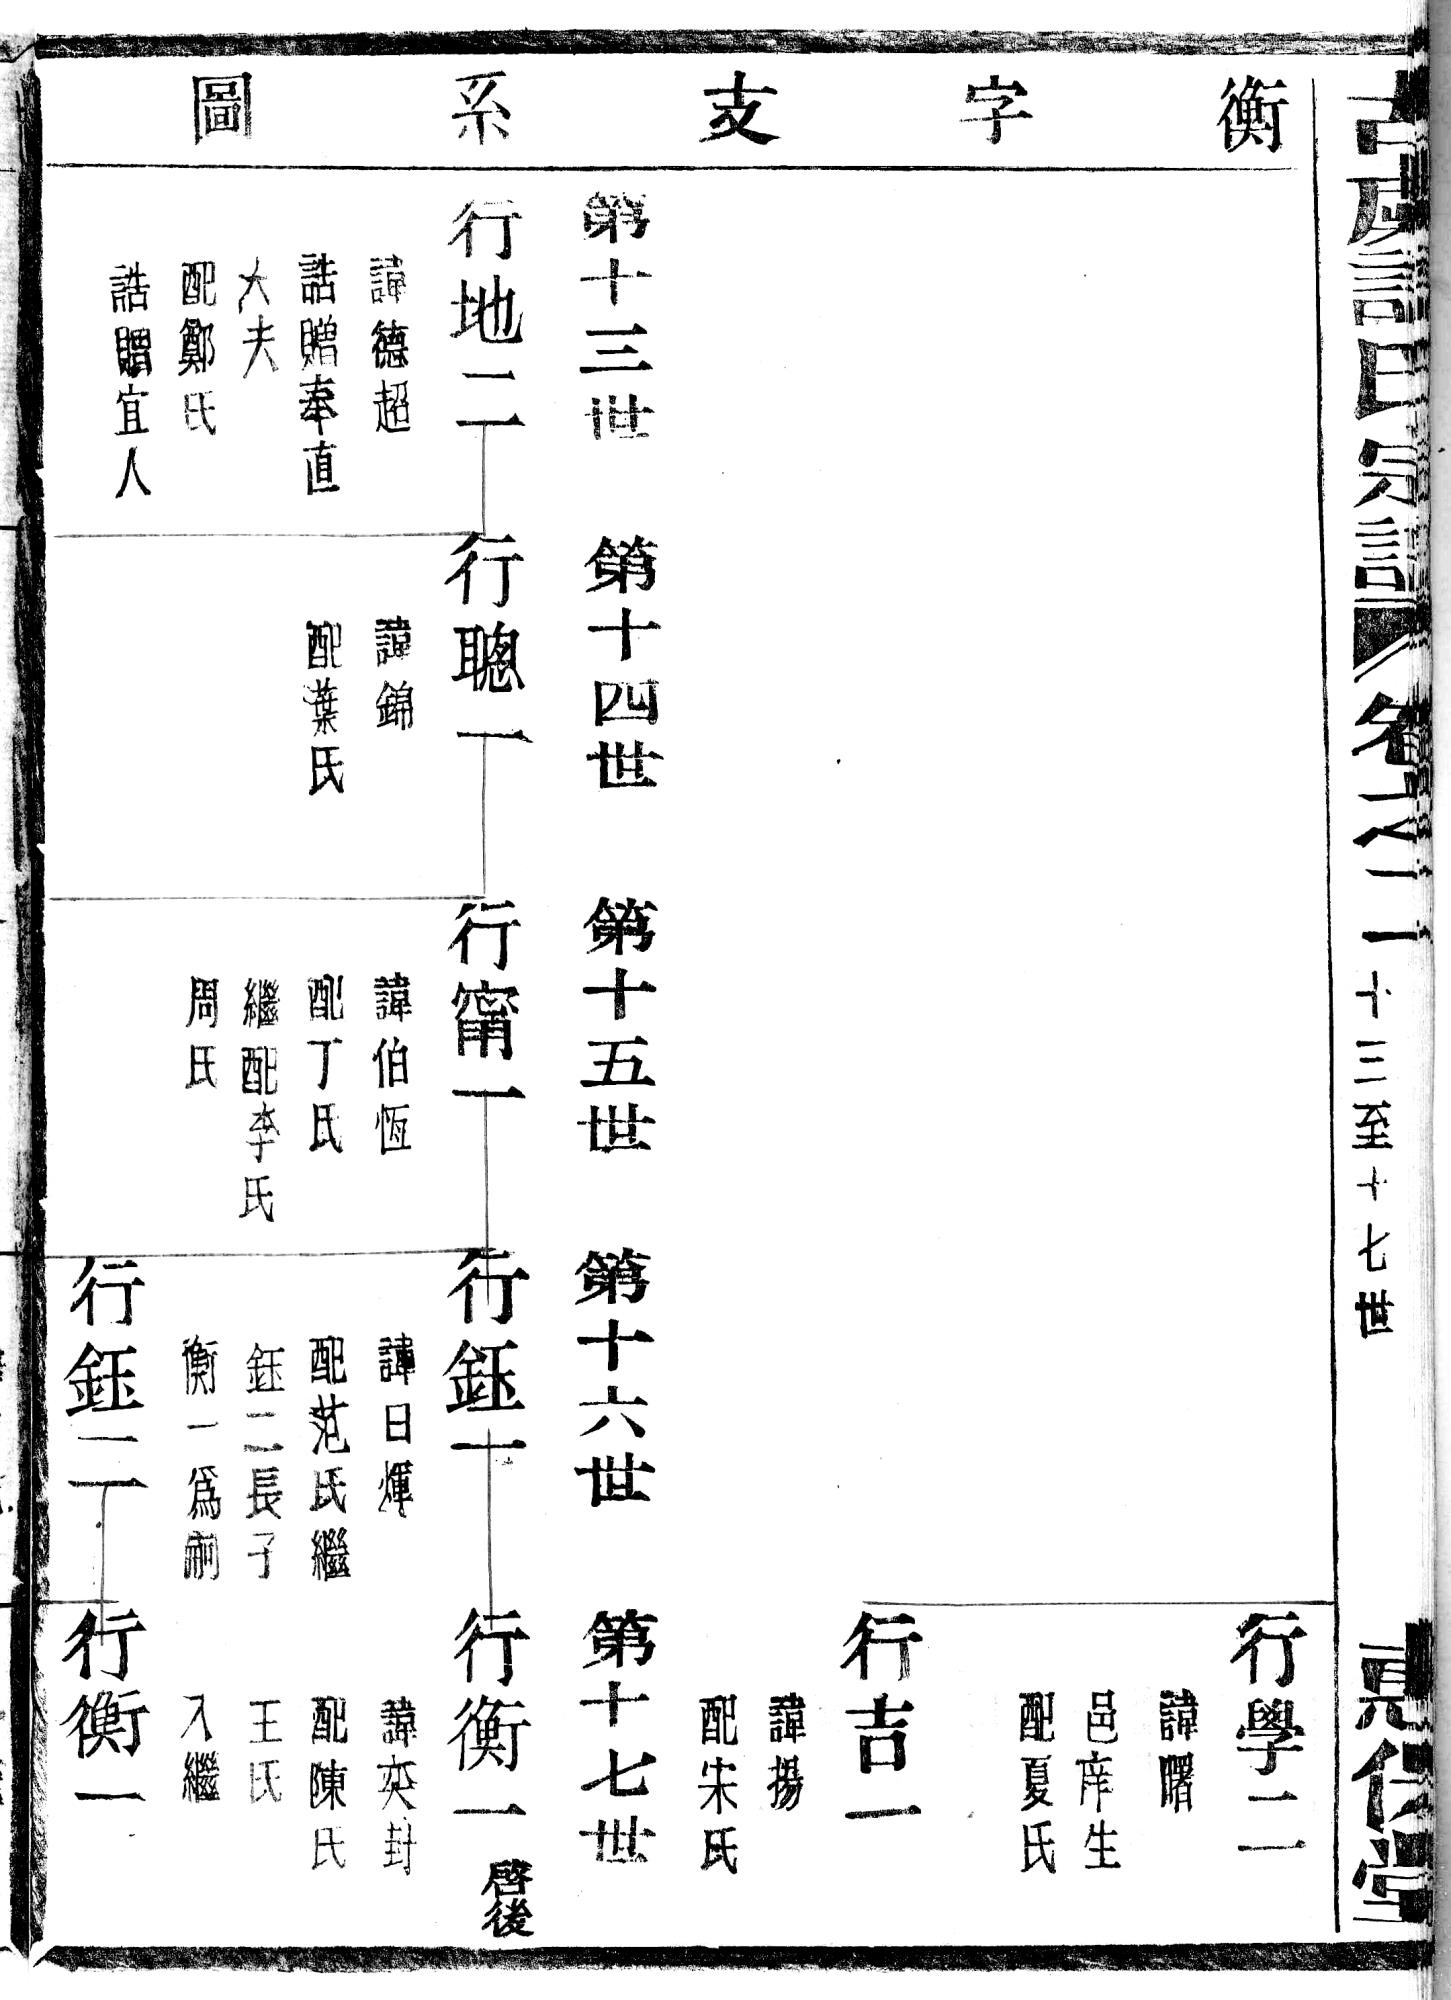 衡字支系圖
行學二
諱曙
邑庠生
配夏氏
行吉一
諱揚
配宋氏
第十三世
行地二
諱德超
誥贈奉直
大夫
配鄭氏
誥贈宜人
第十四世
行聰一
諱錦
配葉氏
第十五世
行甯一
諱伯恆
配丁氏
繼配李氏
周氏
第十六世
行鈺一
諱日煇
配范氏繼
鈺二長子
衡一爲嗣
行鈺二
第十七世
行衡一
啓後
諱奕封
配陳氏
王氏
入繼
行衡一
氏宗譜
卷之二一
十三至十七世
堂